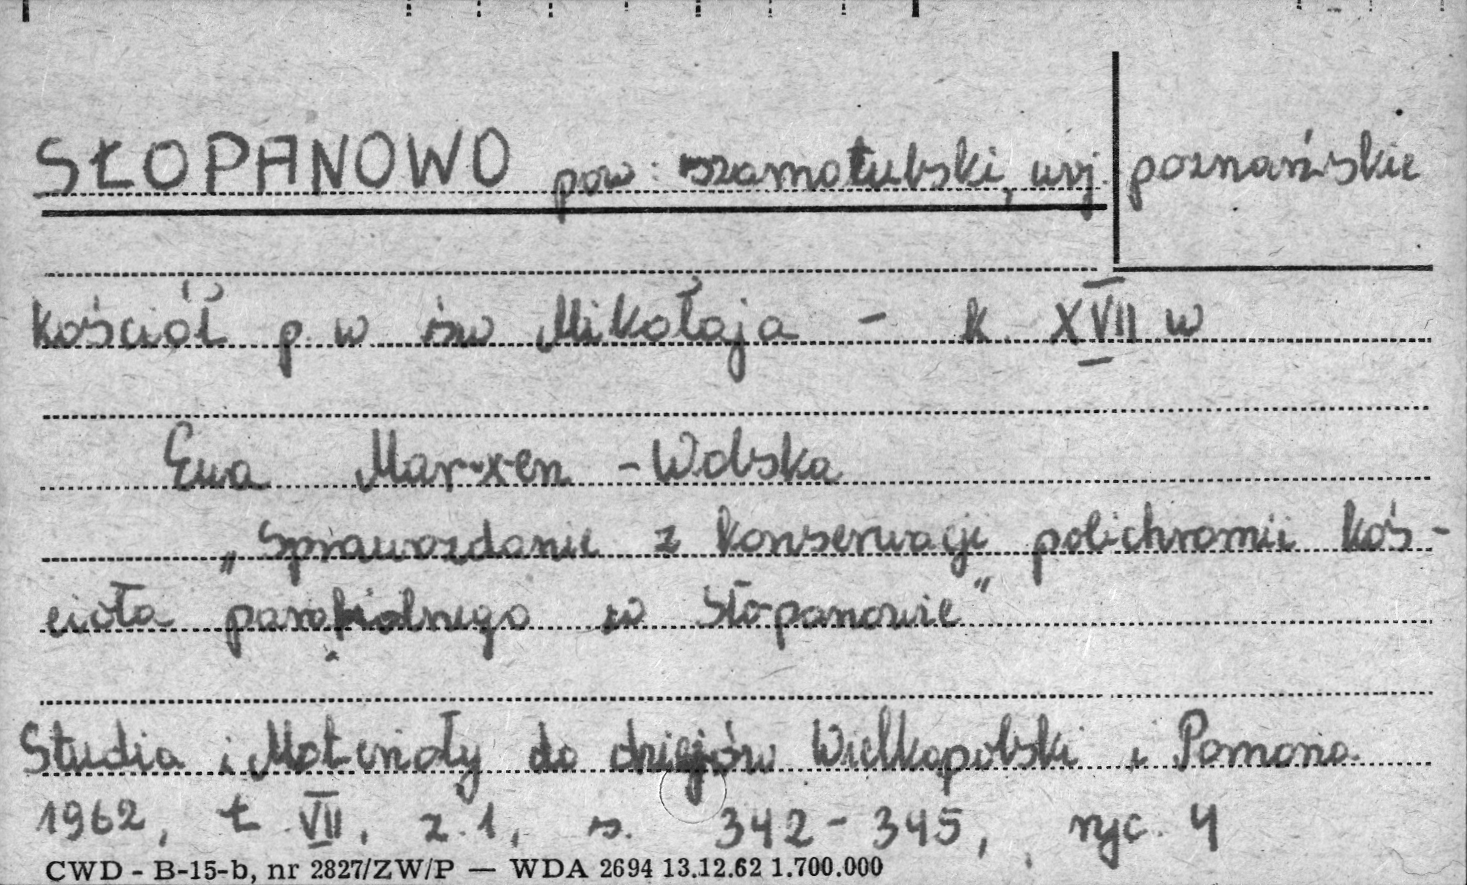 SŁOPANOWO pow. szamotulski, woj. poznańskie
kościół p. w św Mikołaja - k. XVII w
Ewa Marxen-Wolska
„Sprawozdanie z konserwacji polichromii koś-
cioła parafialnego w Słopanowie"
Studia i Materiały do dziejów Wielkopolski i Pomorza
1962, t. VII, z. 1, s. 342-345, ryc. 4
CWD - B-15-b, nr 2827/ZW/P — WDA 2694 13.12.62 1.700.000